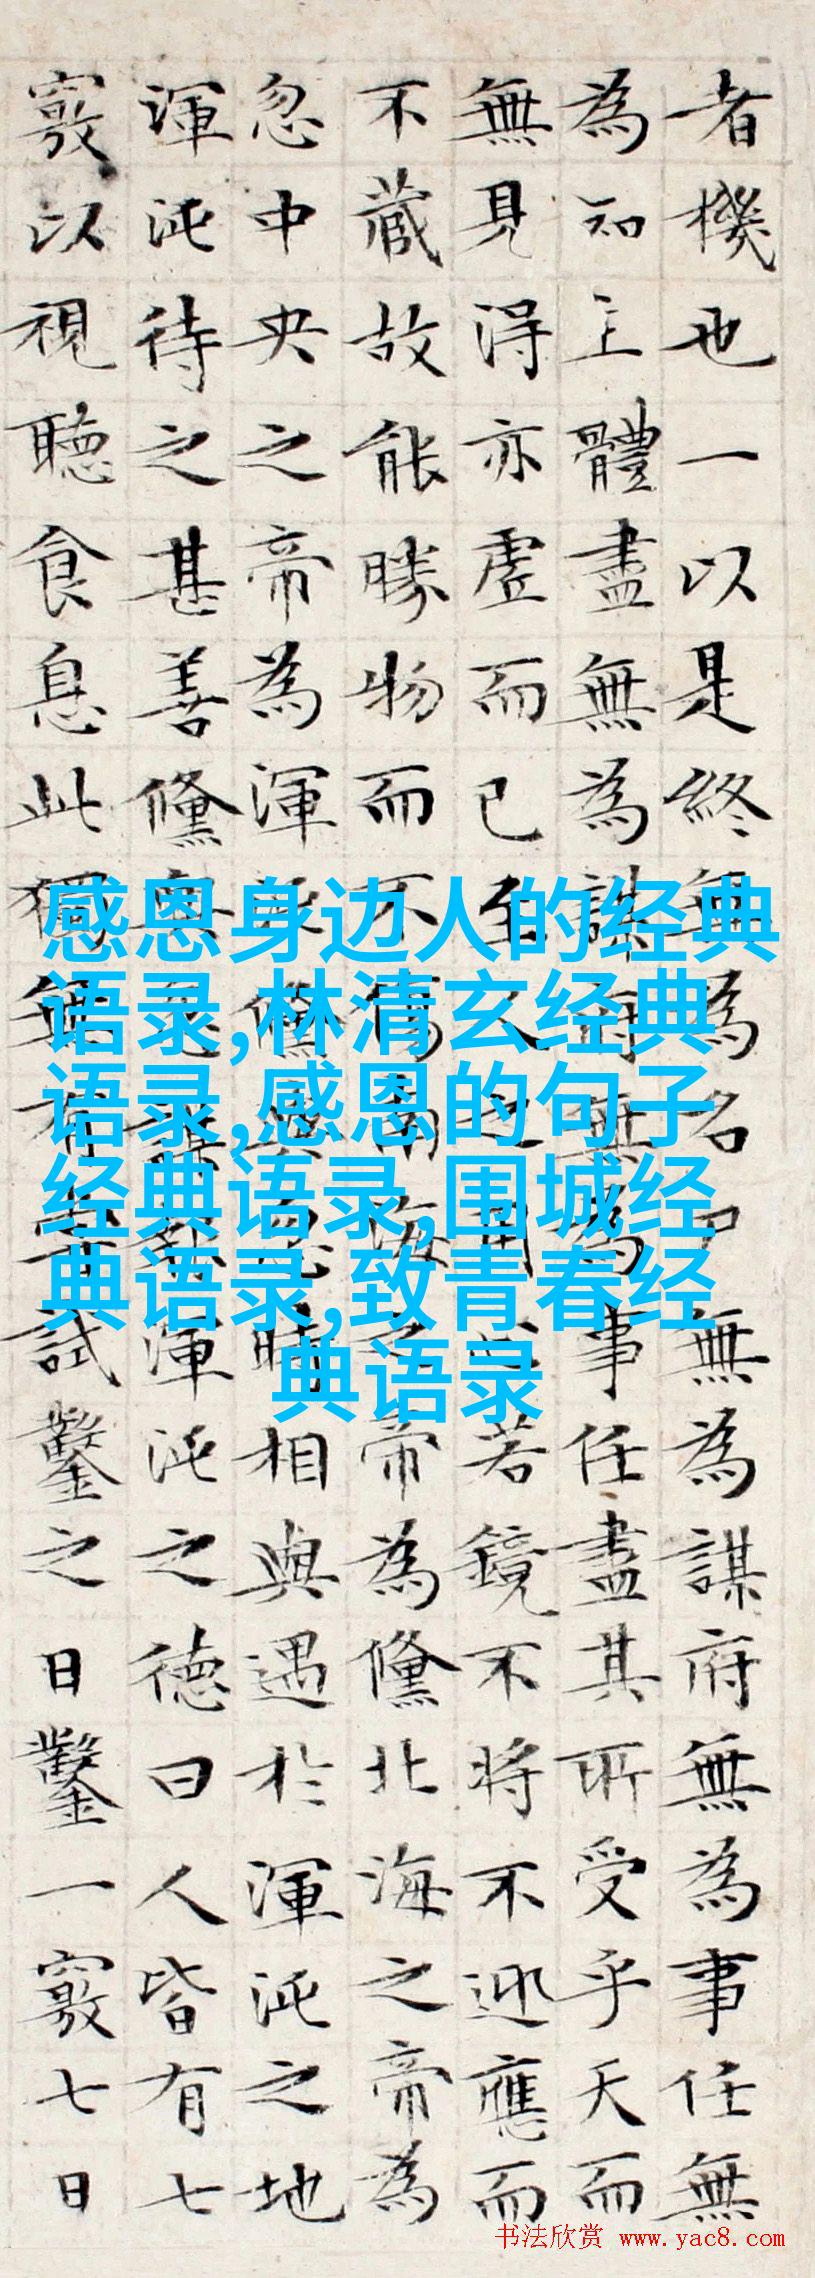 者機也一以是終無為名尸無為謀府無為事任無
為知主體盡無為謀府無為事任盡其所受乎天而
無見得亦虛而已至人之用心若鏡不將不迎應而
不藏故能勝物而不傷南海之帝為儵北海之帝為
忽中央之帝為渾沌儵與忽時相與遇於渾沌之地
渾沌待之甚善儵與忽謀報渾沌之德曰人皆有七
竅以視聽食息此獨無有嘗試鑿之日鑿一竅七日
感恩身边人的经典
语录,林清玄经典
语录,感恩的句子
经典语录,围城经
典语录,致青春经
典语录
书法欣赏 www.yac8.com